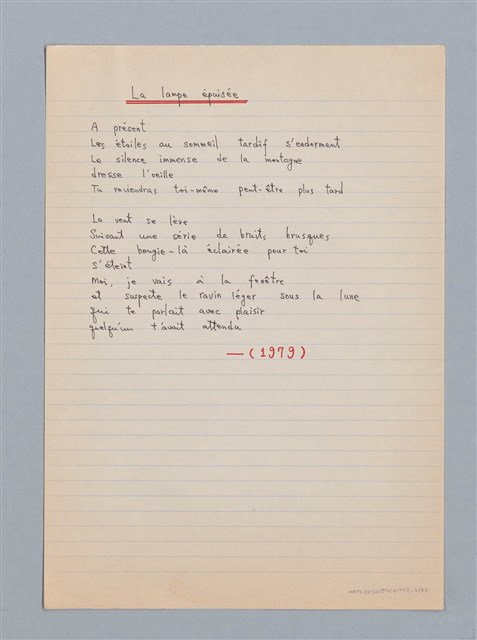 La lampe épuisée
A présent
Les étoiles au sommeil tardif s'endorment
Le silence immense de la montagne
dresse l'oeille
Tu reviendras toi-même peut-être plus tard
Le vent se lève
Suivant une série de bruits brusques
Cette bougie-là éclairée pour toi
s'éteint
Moi, je vais à la fenêtre
et suspecte le ravin léger sous la lune
qui te parlait avec plaisir
quelqu'un t'avait attendu
— (1979)